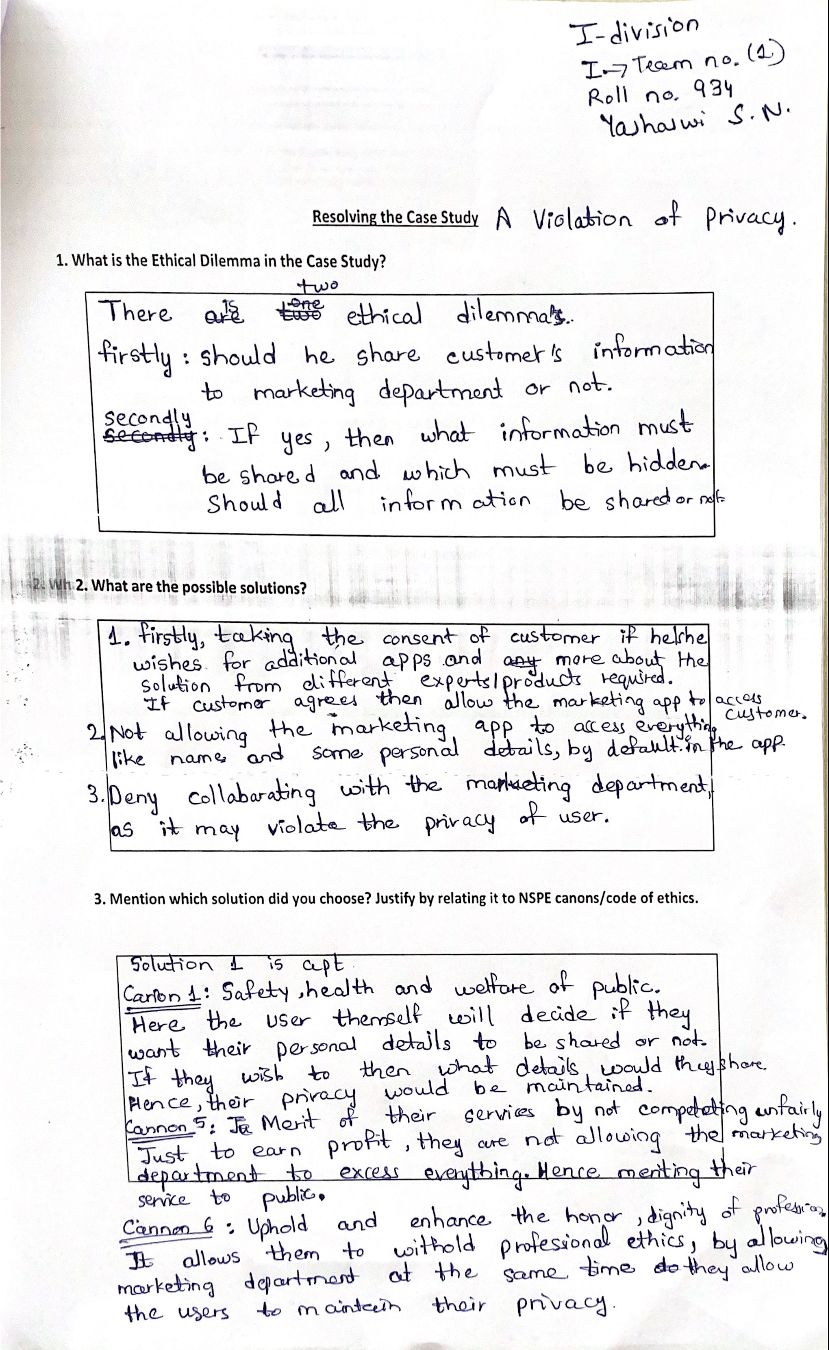 I-division
I→ Team no. (1)
Roll no. 934
Yashaswi S.N.
Resolving the Case Study A Violation of Privacy.
1. What is the Ethical Dilemma in the Case Study?
two
is one
There are two ethical dilemma's.
firstly : should he share customer's information
to marketing department or not.
secondly
secondly : If yes, then what information must
be shared and which must be hidden.
Should all information be shared or not.
2. Wh 2. What are the possible solutions?
1. firstly, taking the consent of customer if he/she
wishes for additional apps and any more about the
solution from different experts/products required.
If customer agrees then allow the marketing app to access
customer.
2. Not allowing the marketing app to access everything
like name and some personal details, by default in the app.
3. Deny collabarating with the marketing department,
as it may violate the privacy of user.
3. Mention which solution did you choose? Justify by relating it to NSPE canons/code of ethics.
Solution 1 is apt.
Canon 1: Safety, health and welfare of public.
Here the user themself will decide if they
want their personal details to be shared or not.
If they wish to then what details would they share.
Hence, their privacy would be maintained.
Cannon 5: Merit of their services by not competeting unfairly
Just to earn profit, they are not allowing the marketing
department to excess everything. Hence meriting their
service to public.
Cannon 6 : Uphold and enhance the honor, dignity of profession
It allows them to withold professional ethics, by allowing
marketing department at the same time do they allow
the users to maintain their privacy.